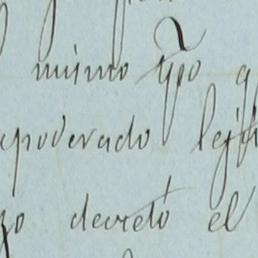 mismo tpo q
apoderado lejí
zo decretó el